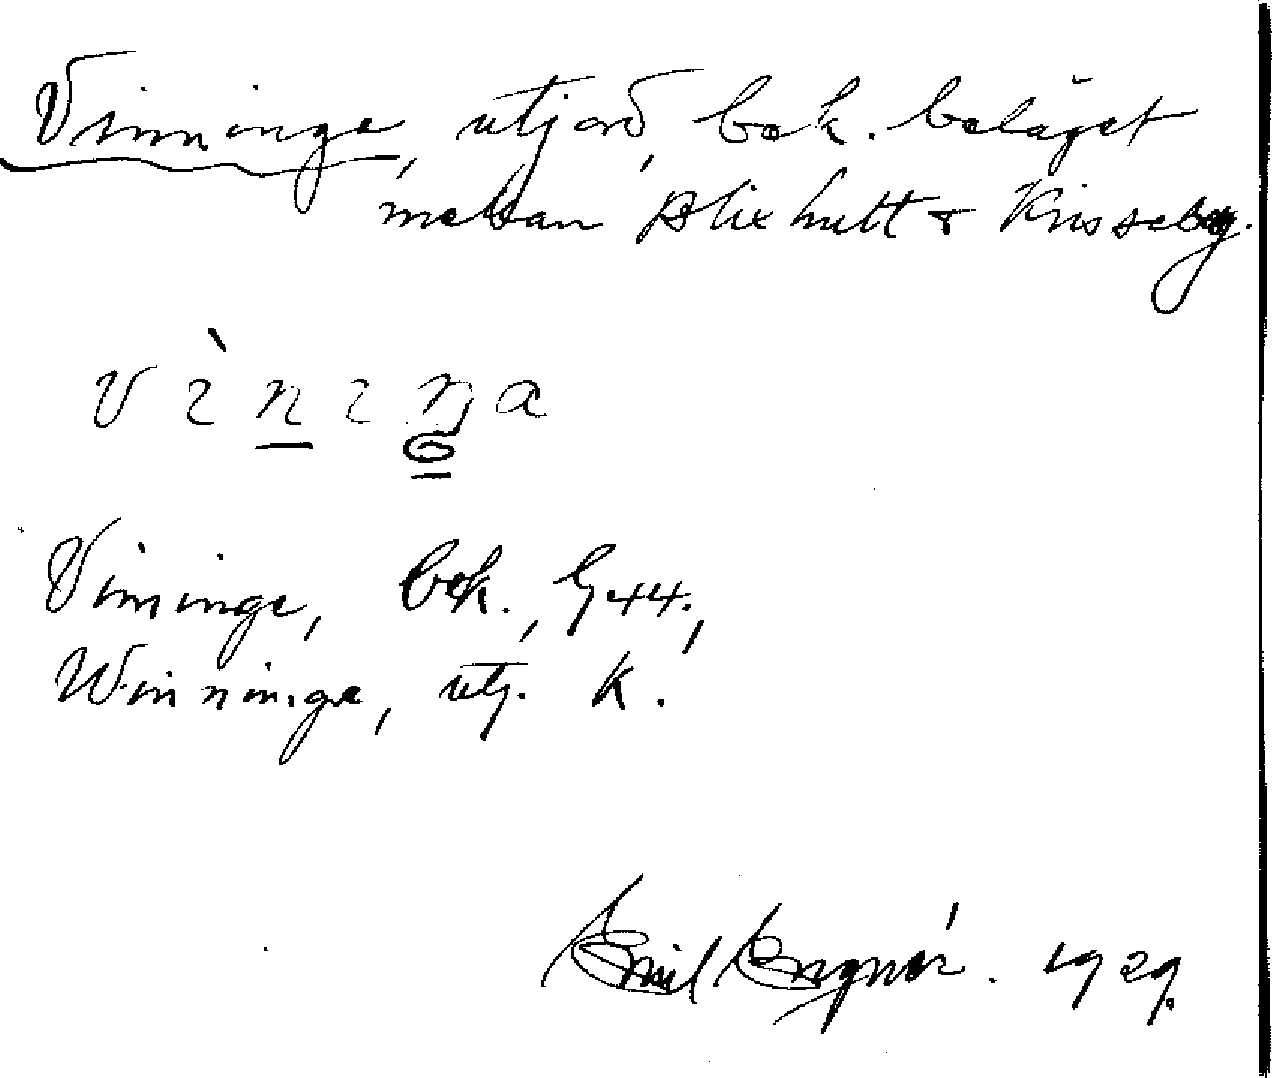 Vinninge, utjord, bek. beläget
mellan Blixhult & Krisseberg.
vìnɩŋa
Vininge, bek., G44.,
Winninge, utj. K.
Emil Engnér. 1929.